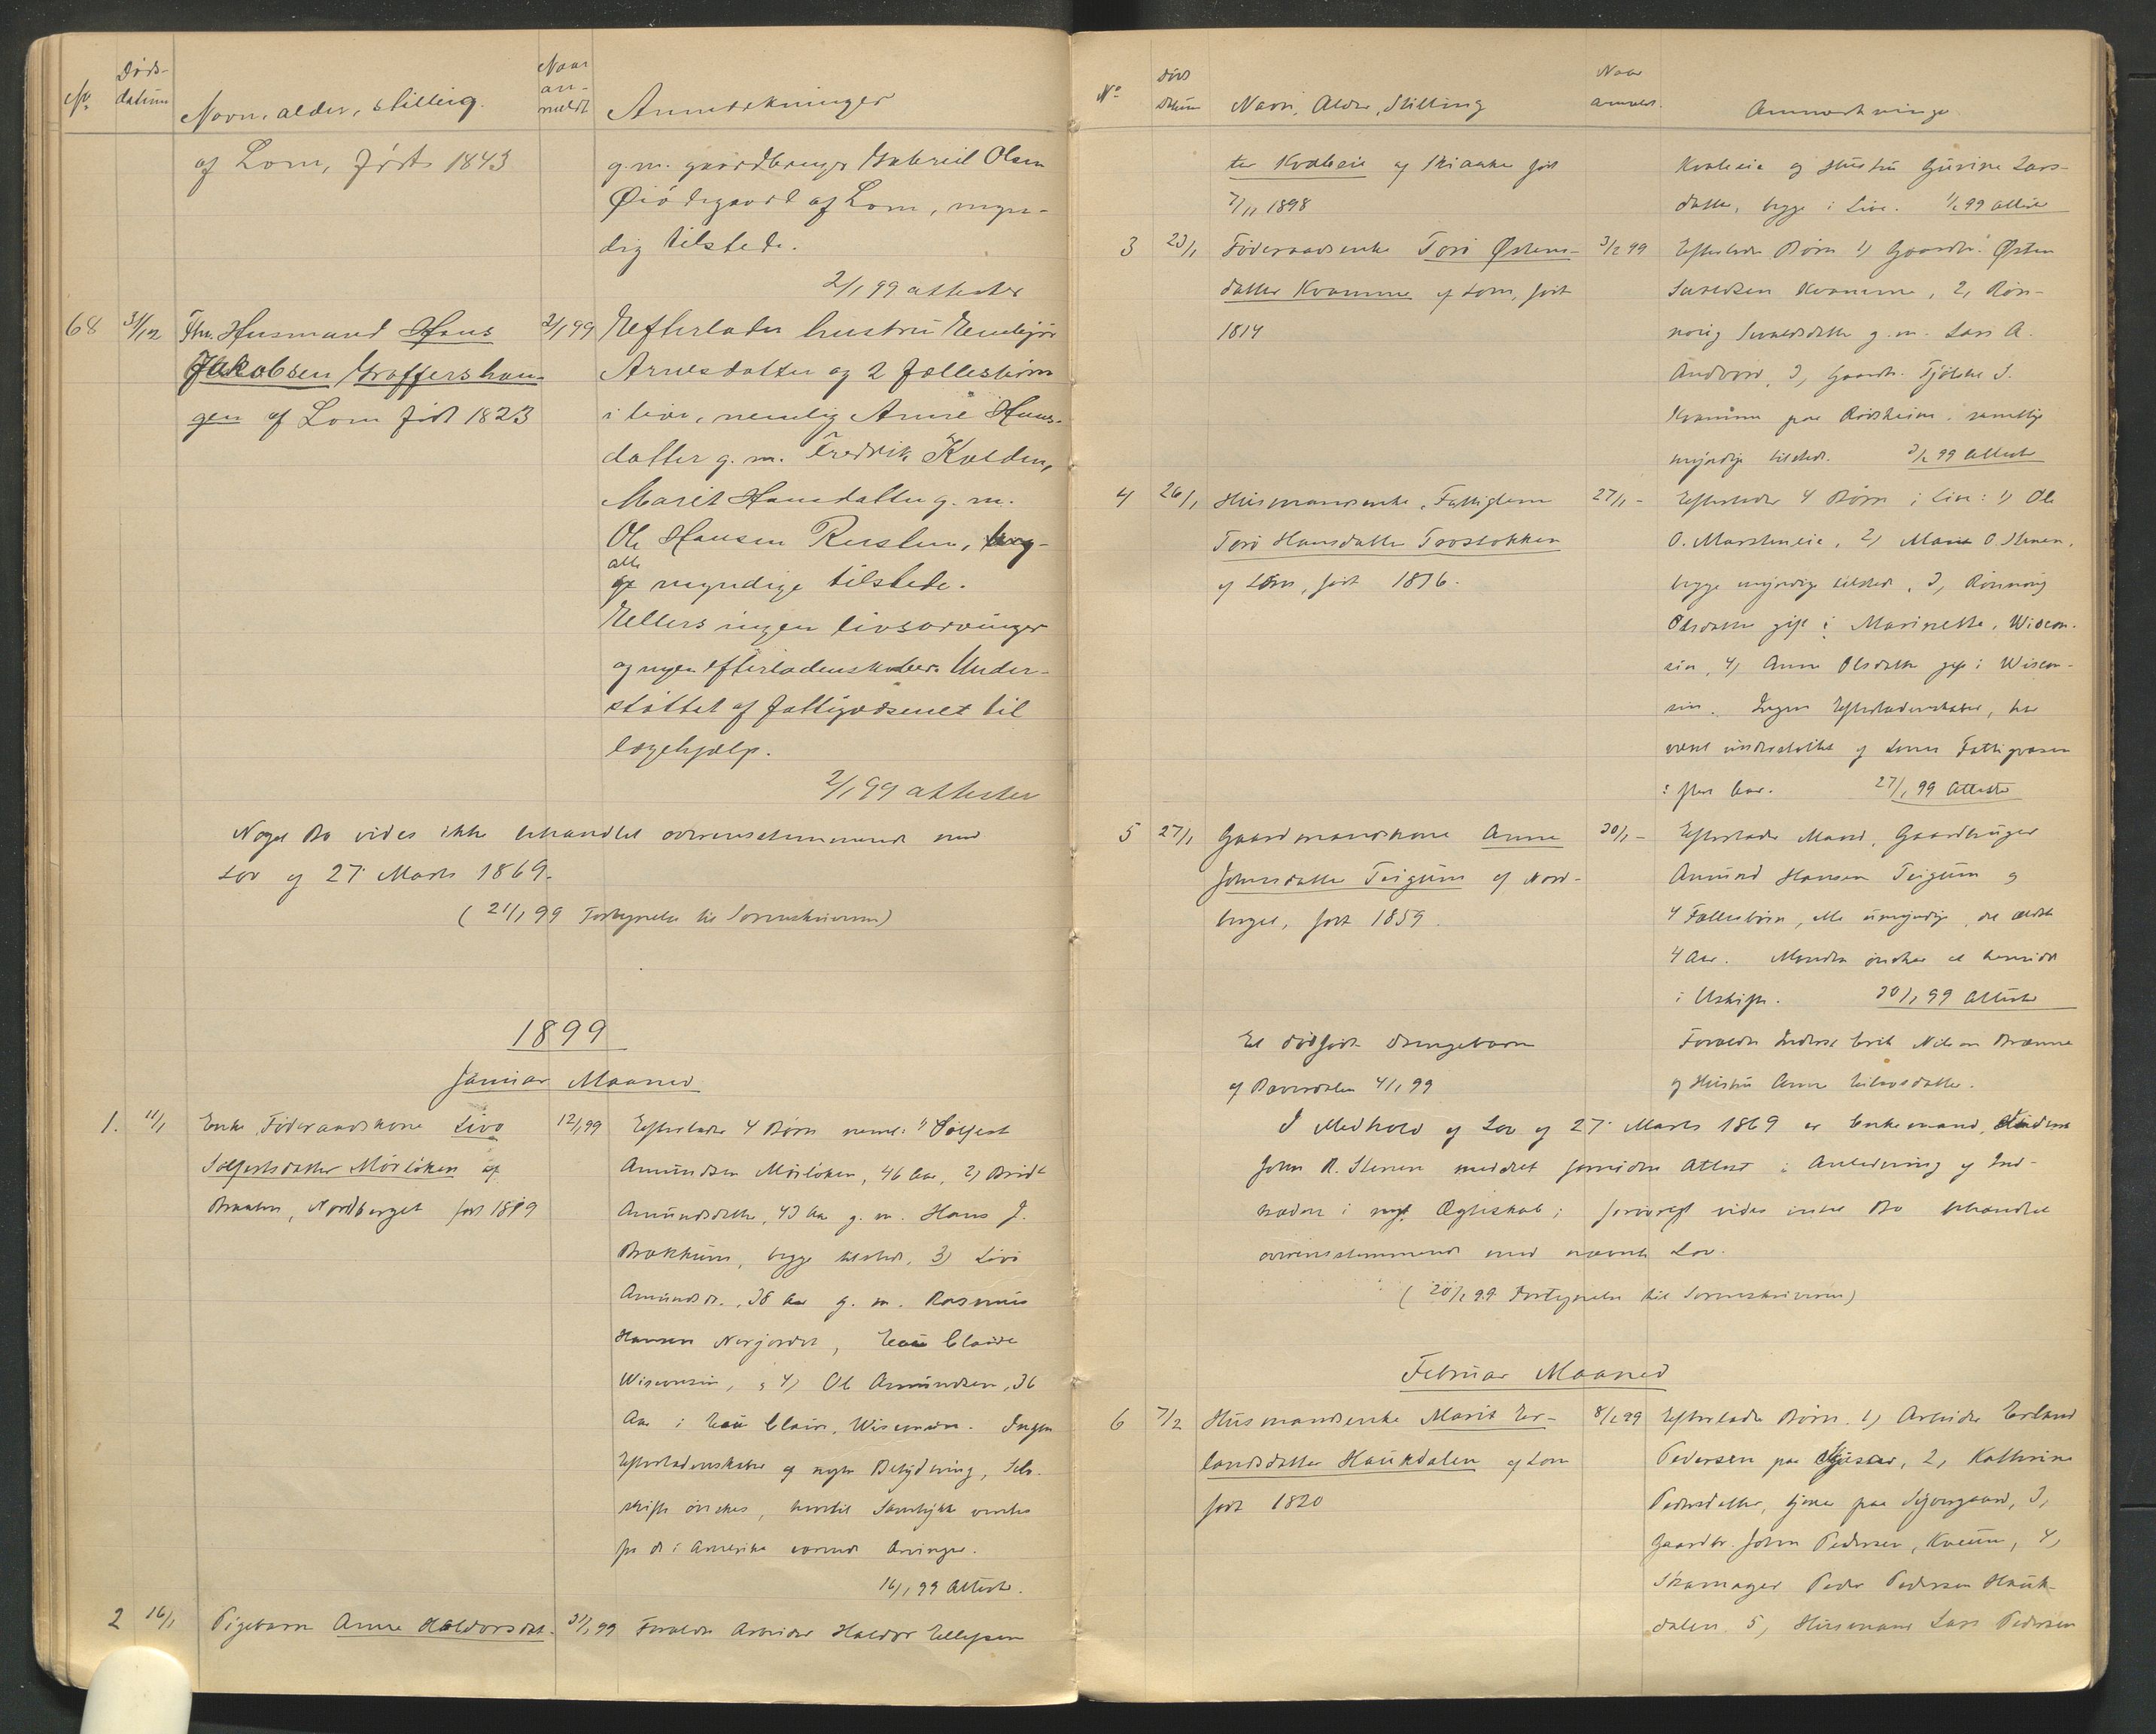 No.
Døds-
datum
Navn, alder, stilling.
Naar
an-
meldt
Anmerkninger
af Lom, født 1843
g. m. gaardbruger Gabriel Olsen
Øiödegaard af Lom, myn-
dig tilstede.
2/1 99 attester
68 31/12 Husmand Hans
Jakobsen Graffershau-
gen af Lom født 1823
2/1 99
Efterlader hustru
Arnesdatter og 2 fællesbörn
i live, nemlig Anne Hans-
datter g. m. Fredrik Kolden,
Marit Hansdatter g. m.
Ole Hansen Ruslen,
alle
myndige tilstede.
Ellers ingen livsarvinger
og ingen efterladenskaber. Under-
støttet af fattigvæsenet til
lægehjælp.
2/1 99 attester
Noget Bo vides ikke behandlet overensstemmende med
Lov af 27 Marts 1869.
(21/1 99 Fortegnelse til Sorenskriveren)
1899
Januar Maaned
1. 11/1 Enke, Föderaadskone Livo
Solfestsdatter Mörlöken af
Braaten, Nordberget født 1819
12/1 99
Efterlader 4 Börn neml: 1) Solfest
Amundsen Mörlöken, 46 Aar, 2) Brit
Amundsdatter, 43 Aar g. m. Hans J.
Brækkum, begge tilstede, 3) Livo
Amundsd., 38 Aar g. m. Rasmus
Hansen Norjordet, Eau Claire
Wisconsin, 4) Ole Amundsen, 36
Aar i Eau Claire, Wisconsin. Ingen
Efterladenskaber af nogen Betydning, Selv-
skifte önskes, hvortil Samtykke ventes
fra de i Amerika værende Arvinger.
16/1 99 Attester.
2 16/1 Pigebarn Anne Haldorsdat-
31/1 99 Forældre Arbeider Haldor Ellefsen
No
død
datum
Navn, Alder, Stilling
Naar
anmeldt.
Anmærkninger
ter Kvaleeie af Skiaker født
7/11 1898
Kvaleeie og Hustru Gurine Lars-
datter, begge i Live. 1/2 99 Attester
3 23/1 Föderaadsenke Toro Østens-
datter Kvamme af Lom, født
1814
3/2 99
Efterlader Börn 1) Gaardbr. Østen
Kvamme, 2, Rön-
noug g. m. Lars A.
Andvord, 3, Gaardbr. S.
Kvamme paa Rödsheim, samtlige
myndige tilstede. 3/2 99 Attester
4 26/1 Husmandsenke, Fattiglem
Toro Hansdatter Trostokken
af Lom, født 1816.
27/1 -
Efterlader 4 Börn i Live: 1) Ole
O. Marstenseie, 2) O. Stenen,
begge myndige tilstede, 3, Rönnoug
Olsdatter gift i Marinette, Wiscon-
sin, 4) Anne Olsdatter gift i Wiscon-
sin. Ingen Efterladenskaber, har
været understøttet af Loms Fattigvæsen
i flere Aar. 27/1 99 Attester
5 27/1 Gaardmandskone Anne
Johnsdatter Teigum af Nord-
berget, født 1859.
30/1 -
Efterlader Mand, Gaardbruger
Amund Hansen Teigum og
4 Fællesbörn, alle umyndige, det ældste
4 Aar. Manden önsker at hensidde
i Uskifte. 30/1 99 Attester
Et dödfödt Drengebarn
af Bæverdalen 4/1 99
Forældre Inderst Erik Nilsen Brænne
og Hustru Anne
I Medhold af Lov af 27 Marts 1869 er Enkemand, Inderst
John R. Stenen meddelt fornöden Attest i Anledning af Ind-
træden i nyt Ægteskab; forövrigt vides intet Bo behandlet
overensstemmende med nævnte Lov.
(20/2 99 Fortegnelse til Sorenskriveren)
Februar Maaned
6 7/2 Husmandsenke Marit Er-
landsdatter Haukdalen af Lom
født 1820
8/2 99
Efterlader Börn. 1) Arbeider Erland
Pedersen paa 2, Kathrine
Pedersdatter, tjener paa 3,
Gaardbr. John Pedersen, Kveum, 4,
Skomager Peder Pedersen Hauk-
dalen 5, Husmand Lars Pedersen